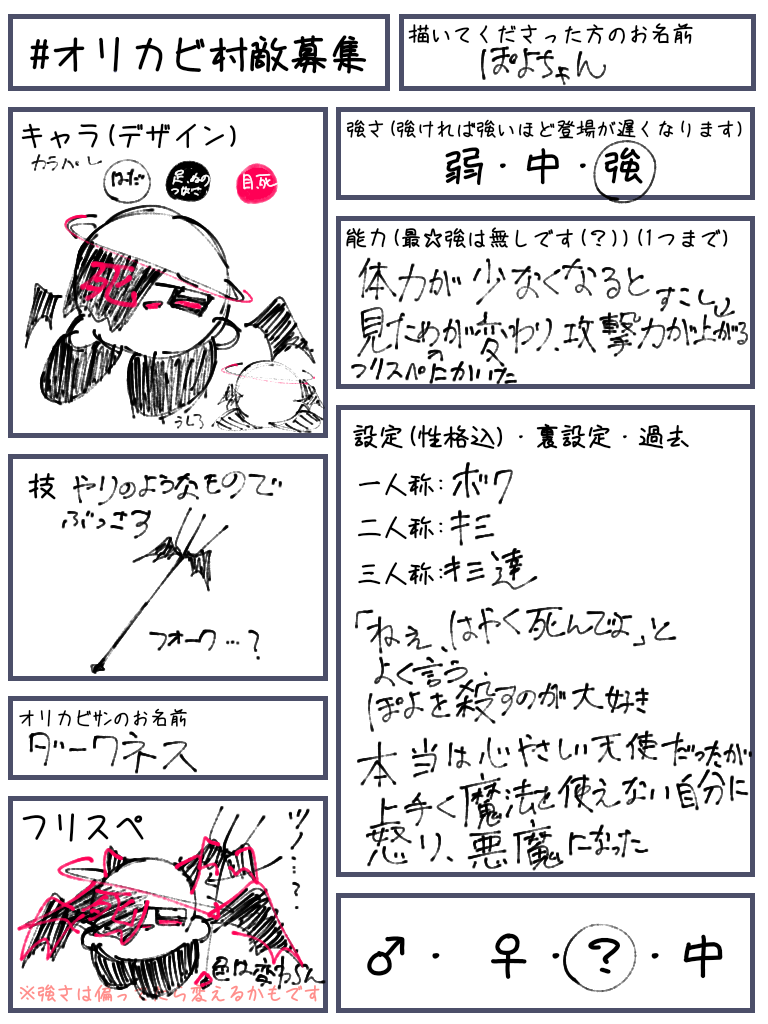 #オリカビ村敵募集
描いてくださった方のお名前
ぽよちゃん
キャラ(デザイン)
カラパレ
はだ
足、ぬの
つばさ
目、死
死
うしろ
強さ(強ければ強いほど登場が遅くなります)
弱・中・強
能力(最☆強は無しです(?))(1つまで)
体力が少なくなると
すこし
見ためが変わり、攻撃力が上がる
フリスペのたかいた
技 やりのようなもので
ぶっさす
フオーク…?
オリカビサンのお名前
ダークネス
フリスペ
ツノ…?
死
色は変わらん
※強さは偏ってたら変えるかもです
設定(性格込)・裏設定・過去
一人称:ボク
二人称:キミ
三人称:キミ達
「ねえ、はやく死んでよ」と
よく言う。
ぽよを殺すのが大好き
本当は心やさしい天使だったが
上手く魔法を使えない自分に
怒り、悪魔になった
♂・♀・?・中